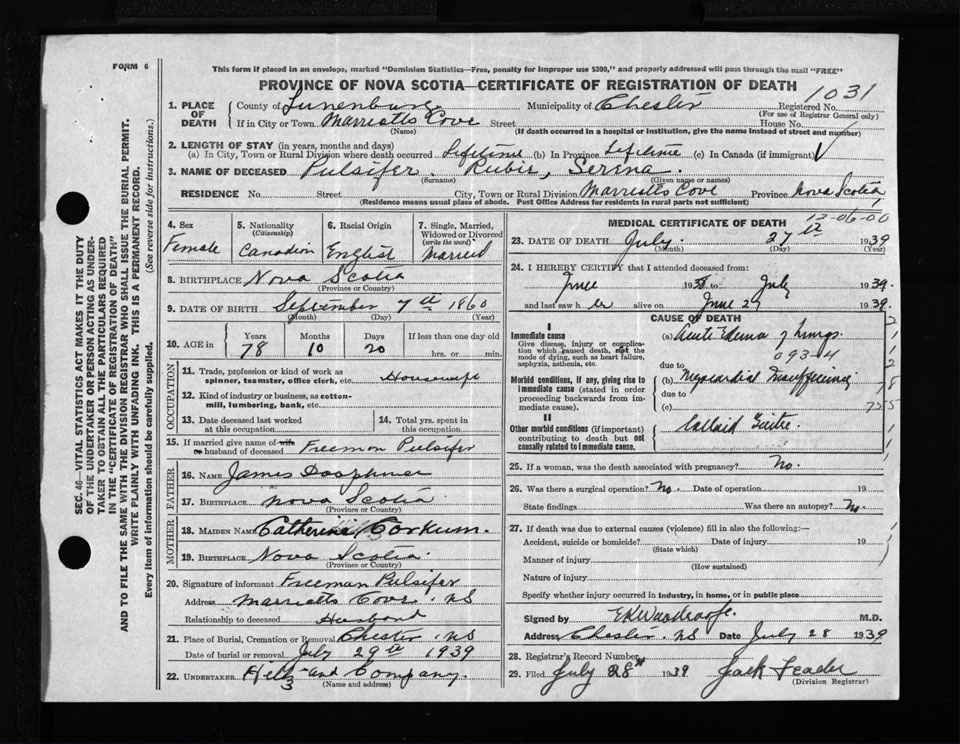 FORM 6
This form if placed in an envelope, marked "Dominion Statistics—Free, penalty for improper use $300," and properly addressed will pass through the mail "FREE"
PROVINCE OF NOVA SCOTIA—CERTIFICATE OF REGISTRATION OF DEATH
1031
1. PLACE OF DEATH
County of Lunenburg Municipality of Chester Registered No.
(For use of Registrar General only)
If in City or Town Marriotts Cove Street House No.
(Name) (If death occurred in a hospital or institution, give the name instead of street and number)
2. LENGTH OF STAY (in years, months and days)
(a) In City, Town or Rural Division where death occurred Lifetime (b) In Province Lifetime (c) In Canada (if immigrant)
3. NAME OF DECEASED Pulsifer, Rubie, Serina.
(Surname) (Given name or names)
RESIDENCE No. Street City, Town or Rural Division Marriotts Cove Province Nova Scotia
(Residence means usual place of abode. Post Office Address for residents in rural parts not sufficient)
SEC. 46—VITAL STATISTICS ACT MAKES IT THE DUTY
OF THE UNDERTAKER OR PERSON ACTING AS UNDER-
TAKER TO OBTAIN ALL THE PARTICULARS REQUIRED
IN THE "CERTIFICATE OF REGISTRATION OF DEATH"
AND TO FILE THE SAME WITH THE DIVISION REGISTRAR WHO SHALL ISSUE THE BURIAL PERMIT.
WRITE PLAINLY WITH UNFADING INK. THIS IS A PERMANENT RECORD.
Every item of information should be carefully supplied. (See reverse side for instructions.)
4. Sex
Female
5. Nationality
(Citizenship)
Canadian
6. Racial Origin
English
7. Single, Married,
Widowed or Divorced
(write the word)
Married
8. BIRTHPLACE Nova Scotia
(Province or Country)
9. DATE OF BIRTH September 7th 1860
(Month) (Day) (Year)
10. AGE in Years Months Days If less than one day old
78 10 20 hrs. or min.
OCCUPATION
11. Trade, profession or kind of work as
spinner, teamster, office clerk, etc. Housewife
12. Kind of industry or business, as cotton-
mill, lumbering, bank, etc.
13. Date deceased last worked
at this occupation
14. Total yrs. spent in
this occupation
15. If married give name of wife
or husband of deceased Freemon Pulsifer
FATHER
16. NAME James
17. BIRTHPLACE Nova Scotia
(Province or Country)
MOTHER
18. MAIDEN NAME Catherine Corkum.
19. BIRTHPLACE Nova Scotia
(Province or Country)
20. Signature of informant Freeman Pulsifer
Address Marriotts Cove. NS
Relationship to deceased Husband
21. Place of Burial, Cremation or Removal Chester. NS
Date of burial or removal July 29th 1939
22. UNDERTAKER and Company.
(Name and address)
MEDICAL CERTIFICATE OF DEATH
12-06-00
23. DATE OF DEATH July 27th 1939
(Month) (Day) (Year)
24. I HEREBY CERTIFY that I attended deceased from:
June 1938 to July 1939.
and last saw h er alive on June 27 1939.
CAUSE OF DEATH
I
Immediate cause
Give disease, injury or complica-
tion which caused death, not the
mode of dying, such as heart failure,
asphyxia, asthenia, etc.
(a) Acute Edema of Lungs
093-4
due to
Morbid conditions, if any, giving rise to
immediate cause (stated in order
proceeding backwards from im-
mediate cause).
(b) Myocardial Insufficiency
due to
(c)
II
Other morbid conditions (if important)
contributing to death but not
causally related to immediate cause.
Colloid Goitre.
25. If a woman, was the death associated with pregnancy? No.
26. Was there a surgical operation? No Date of operation 19
State findings Was there an autopsy? No.
27. If death was due to external causes (violence) fill in also the following:—
Accident, suicide or homicide? Date of injury 19
(State which)
Manner of injury
(How sustained)
Nature of injury
Specify whether injury occurred in industry, in home, or in public place
Signed by M.D.
Address Chester. NS Date July 28 1939
28. Registrar's Record Number
29. Filed July 28th 1939 Jack
(Division Registrar)